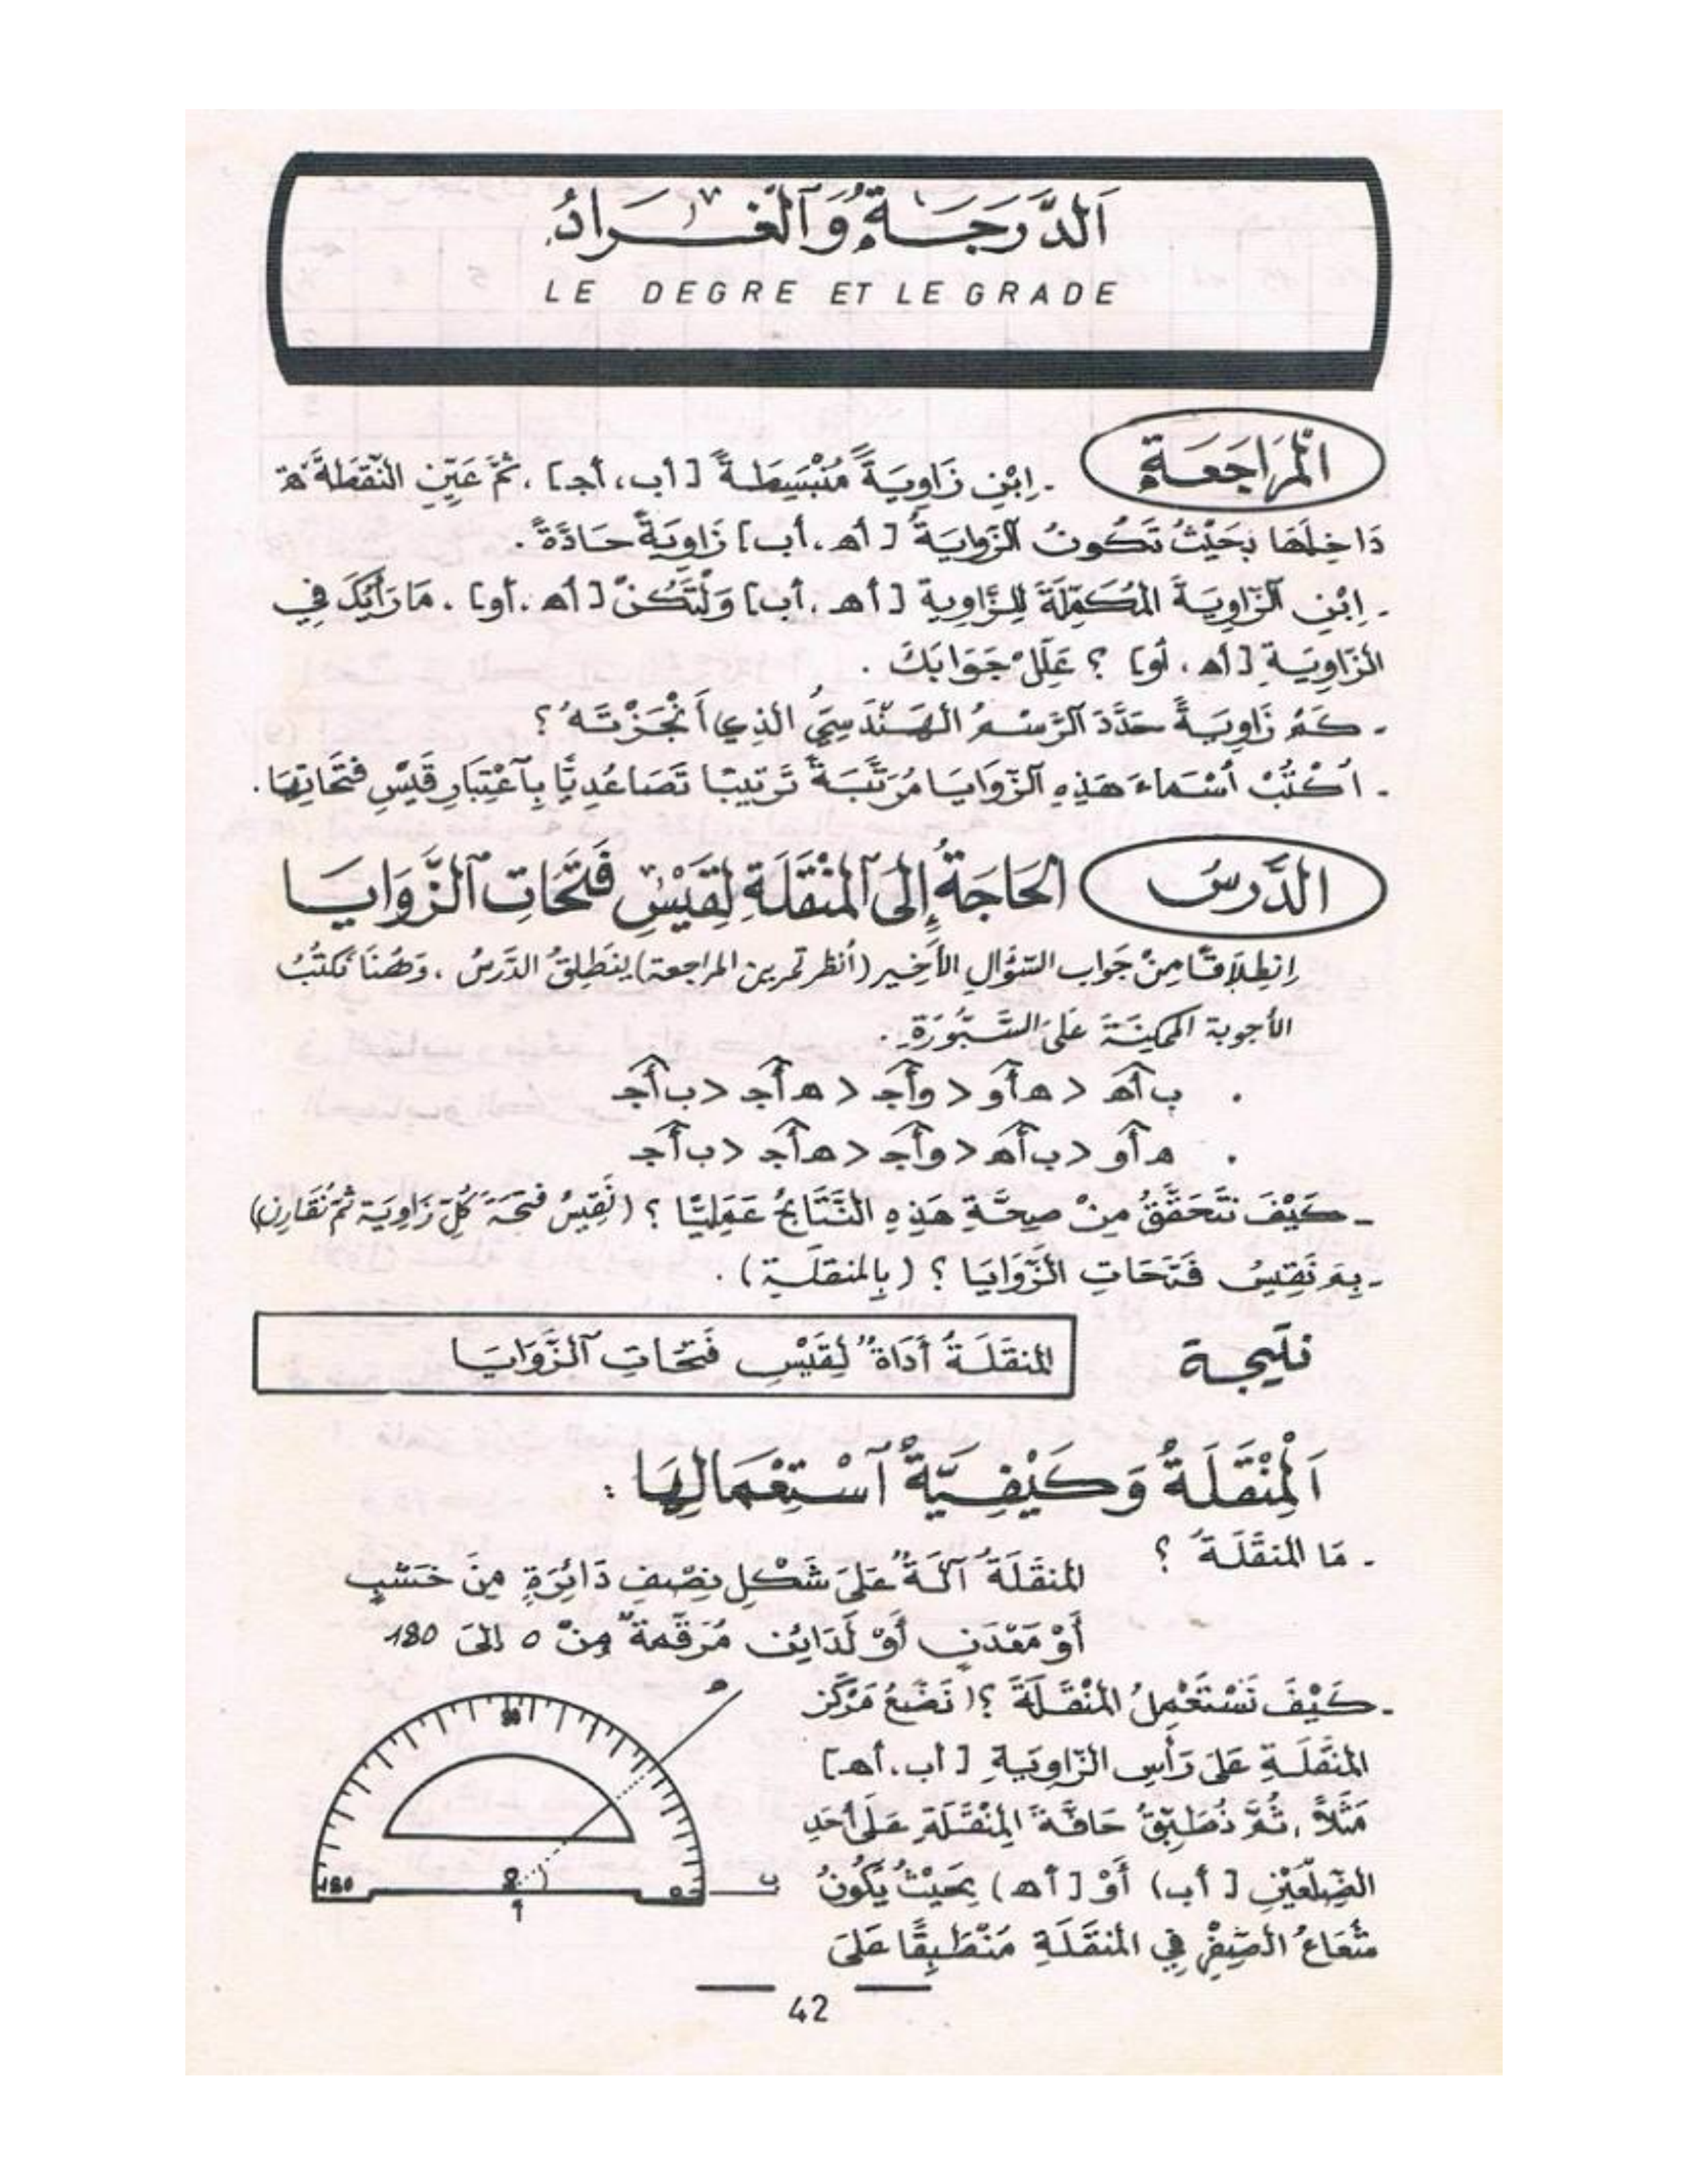 اَلدَّرَجَةُ وَالْغْرَادُ
LE DEGRE ET LE GRADE
الْمُرَاجَعَة
- اِبْنِ زَاوِيَةً مُنْبَسِطَةً [أب، أج]، ثُمَّ عَيِّنِ النُّقْطَةَ ه
دَاخِلَهَا بِحَيْثُ تَكُونُ الزَّاوِيَةُ [أه، أب] زَاوِيَةً حَادَّةً.
- اِبْنِ الزَّاوِيَةَ الْمُكَمِّلَةَ لِلزَّاوِية [أه، أب] وَلْتَكُنْ [أه، أو]. مَا رَأْيُكَ فِي
الزَّاوِيَةِ [أه، أو] ؟ عَلِّلْ جَوَابَكَ.
- كَمْ زَاوِيَةً حَدَّدَ الرَّسْمُ الْهَنْدَسِيُّ الذِي أَنْجَزْتَهُ ؟
- اُكْتُبْ أَسْمَاءَ هَذِهِ الزَّوَايَا مُرَتَّبَةً تَرْتِيبًا تَصَاعُدِيًّا بِاعْتِبَارِ قَيْسِ فَتَحَاتِهَا.
الدَّرسُ
الحَاجَةُ إِلَى الْمِنْقَلَةِ لِقَيْسِ فَتَحَاتِ الزَّوَايَا
اِنطِلَاقًا مِنْ جَوَاب السُّؤَالِ الأَخِير (أنظر تمرين المراجعة) يَنطَلِقُ الدَّرسُ، وَهُنَا نَكتُبُ
الأجوبة الممكِنَةَ عَلَى السَّبُّورَةِ.
. ب أ ه < ه أ و < و أ ج < ه أ ج < ب أ ج
. ه أ و < ب أ ه < و أ ج < ه أ ج < ب أ ج
- كَيْفَ نَتَحَقَّقُ مِنْ صِحَّةِ هَذِهِ النَّتَائِجِ عَمَلِيًّا ؟ (نَقِيسُ فَتحَةَ كُلِّ زَاوِيَة ثُمَّ نُقَارِن)
- بِمَ نَقِيسُ فَتَحَاتِ الزَّوَايَا ؟ (بِالمنقلَةِ).
نتيجة
المنقَلَةُ أَدَاةٌ لِقَيْسِ فَتَحَاتِ الزَّوَايَا
اَلْمِنْقَلَةُ وَكَيْفِيَّةُ اسْتِعْمَالِهَا :
- مَا المنقَلَةُ ؟
المنقَلَةُ آلَةٌ عَلَى شَكْلِ نِصْفِ دَائِرَةٍ مِنَ خَشَبٍ
أَوْ مَعْدَنٍ أَوْ لَدَايِن مُرَقَّمةٌ مِنْ 0 إلَى 180
- كَيْفَ نَسْتَعْمِلُ المِنْقَلَةَ ؟ (نَضَعُ مَرْكَز
المنقَلَةِ عَلَى رَأْسِ الزَّاوِيَةِ [أب، أه]
مَثَلاً، ثُمَّ نُطَبِّقُ حَافَّةَ المِنْقَلَةِ عَلَى أَحَدِ
الضِّلْعَيْنِ [أب) أَوْ [أه) بِحَيْثُ يَكُونُ
شُعَاعُ الصِّفْرِ فِي المنقَلَةِ مُنْطَبِقًا عَلَى
ه
90
180
0
ب
أ
42